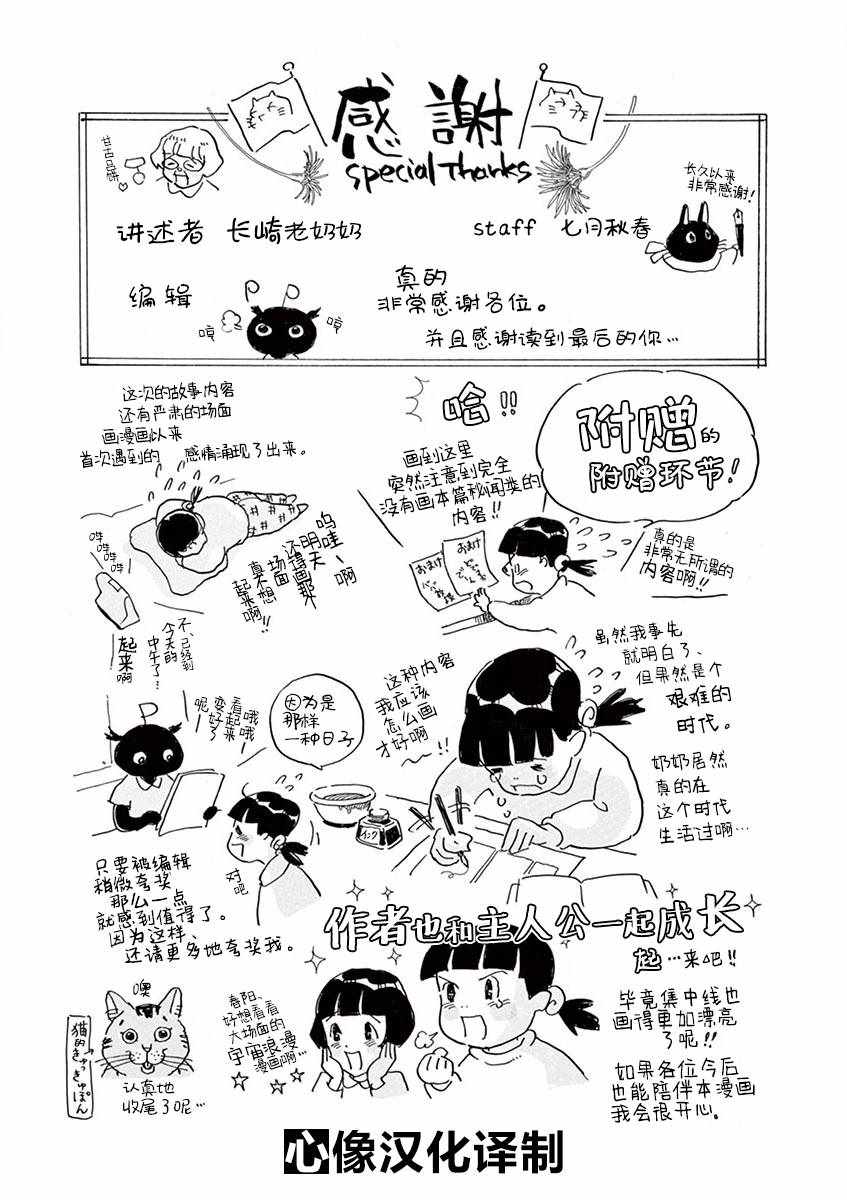 感謝
special Thanks
长久以来
非常感谢!
讲述者 长崎老奶奶
staff 七月秋春
编辑
哼
哼
真的
非常感谢各位。
并且感谢读到最后的你…
附赠的
附赠环节!
哈!!
画到这里
突然注意到完全
没有画本篇秘闻类的
内容!!
真的是
非常无所谓的
内容啊!!
おまけ
おまけ
这次的故事内容
还有严肃的场面
画漫画以来
首次遇到的 感情涌现了出来。
呜哇~啊
还明天
场面得画那
真不想
起来啊!!
哔
哔
哔
哔
不、已经到
今天的
中午了…
起来啊
虽然我事先
就明白了、
但果然是个
艰难的
时代。
奶奶居然
真的在
这个时代
生活过啊…
这种内容
我应该
怎么画
才好啊~!!
インク
看哦
起来哦
变好了
呢
因为是
那样
一种日子
对吧
只要被编辑
稍微夸奖
那么一点
就感到值得了。
因为这样、
还请更多地夸奖我。
作者也和主人公一起成长
起…来吧!!
毕竟集中线也
画得更加漂亮
了呢!!
如果各位今后
也能陪伴本漫画
我会很开心。
春阳、
好想看看
大场面的
宇宙浪漫
漫画啊…
噢
猫的きゅっきゅぽん
认真地
收尾了呢…
心像汉化译制